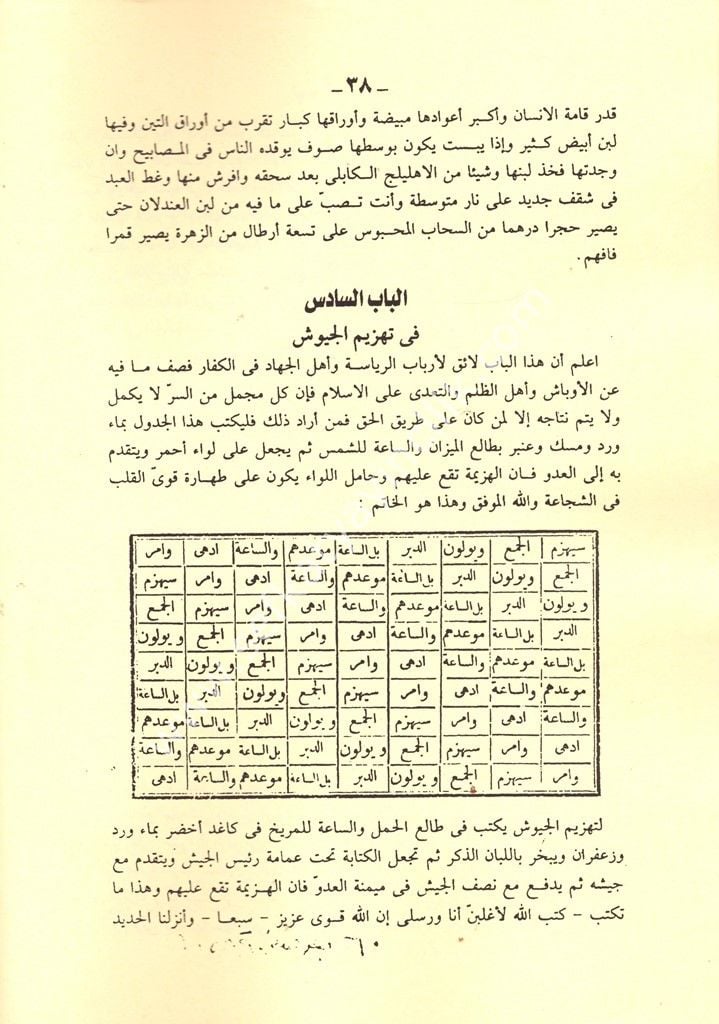 ـ ٣٨ ـ
قدر قامة الانسان وأكبر أعوادها مبيضة وأوراقها كبار تقرب من أوراق التين وفيها
لبن أبيض كثير وإذا يبست يكون بوسطها صوف يوقده الناس فى المصابيح وان
وجدتها فخذ لبنها وشيئا من الاهليلج الكابلى بعد سحقه وافرش منها وغط العبد
فى شقف جديد على نار متوسطة وأنت تصبّ على ما فيه من لبن العندلان حتى
يصير حجرا درهما من السحاب المحبوس على تسعة أرطال من الزهرة يصير قمرا
فافهم .
الباب السادس
فى تهزيم الجيوش
اعلم أن هذا الباب لائق لأرباب الرياسة وأهل الجهاد فى الكفار فصف ما فيه
عن الأوباش وأهل الظلم والتعدى على الاسلام فإن كل مجمل من السرّ لا يكمل
ولا يتم نتاجه إلا لمن كان على طريق الحق فمن أراد ذلك فليكتب هذا الجدول بماء
ورد ومسك وعنبر بطالع الميزان والساعة للشمس ثم يجعل على لواء أحمر ويتقدم
به إلى العدو فان الهزيمة تقع عليهم وحامل اللواء يكون على طهارة قوىّ القلب
فى الشجاعة والله الموفق وهذا هو الخاتم :
سيهزم الجمع ويولون الدبر بل الساعة موعدهم والساعة ادهى وامر
الجمع ويولون الدبر بل الساعة موعدهم والساعة ادهى وامر سيهزم
ويولون الدبر بل الساعة موعدهم والساعة ادهى وامر سيهزم الجمع
الدبر بل الساعة موعدهم والساعة ادهى وامر سيهزم الجمع ويولون
بل الساعة موعدهم والساعة ادهى وامر سيهزم الجمع ويولون الدبر
موعدهم والساعة ادهى وامر سيهزم الجمع ويولون الدبر بل الساعة
والساعة ادهى وامر سيهزم الجمع ويولون الدبر بل الساعة موعدهم
ادهى وامر سيهزم الجمع ويولون الدبر بل الساعة موعدهم والساعة
وامر سيهزم الجمع ويولون الدبر بل الساعة موعدهم والساعة ادهى
لتهزيم الجيوش يكتب فى طالع الحمل والساعة للمريخ فى كاغد أخضر بماء ورد
وزعفران ويبخر باللبان الذكر ثم تجعل الكتابة تحت عمامة رئيس الجيش ويتقدم مع
جيشه ثم يدفع مع نصف الجيش فى ميمنة العدوّ فان الهزيمة تقع عليهم وهذا ما
تكتب – كتب الله لأغلبنّ أنا ورسلى إن الله قوى عزيز – سبعا – وأنزلنا الحديد